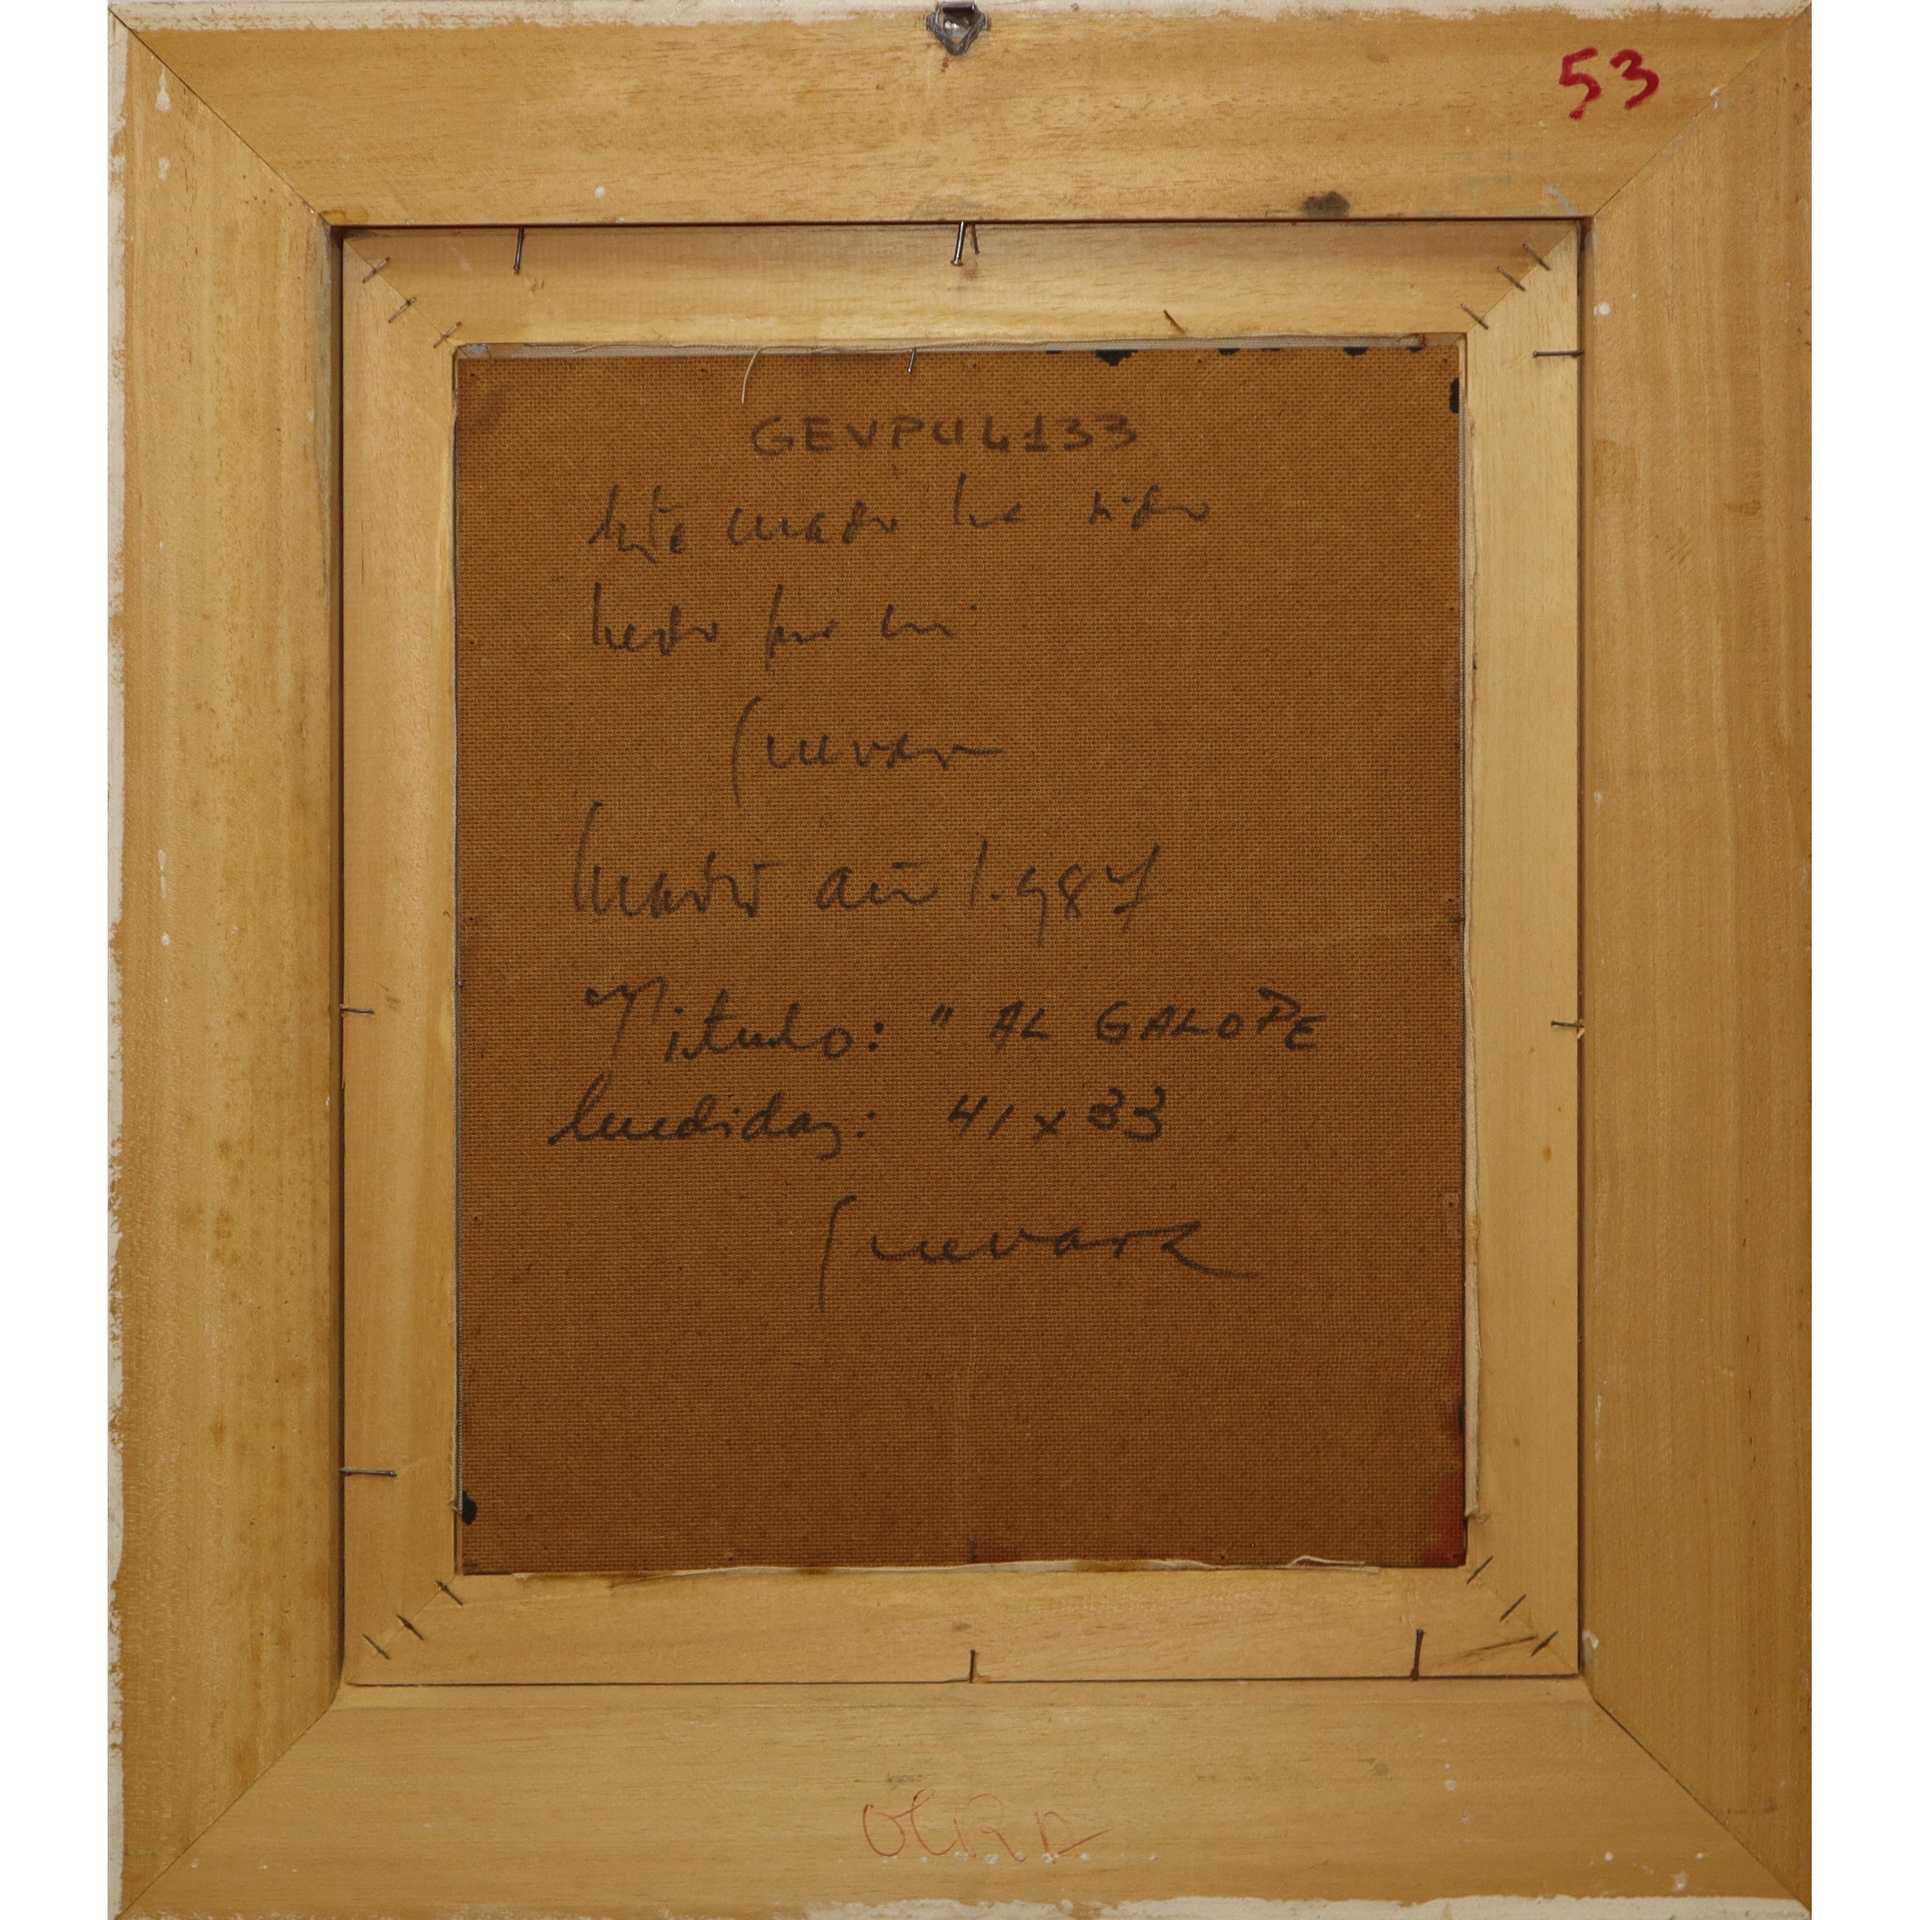 53
GEVPUL133
Este cuadro ha sido
hecho por mi
Guevara
Madrid año 1.987
Titulo: " AL GALOPE
Medidas: 41 x 33
Guevara